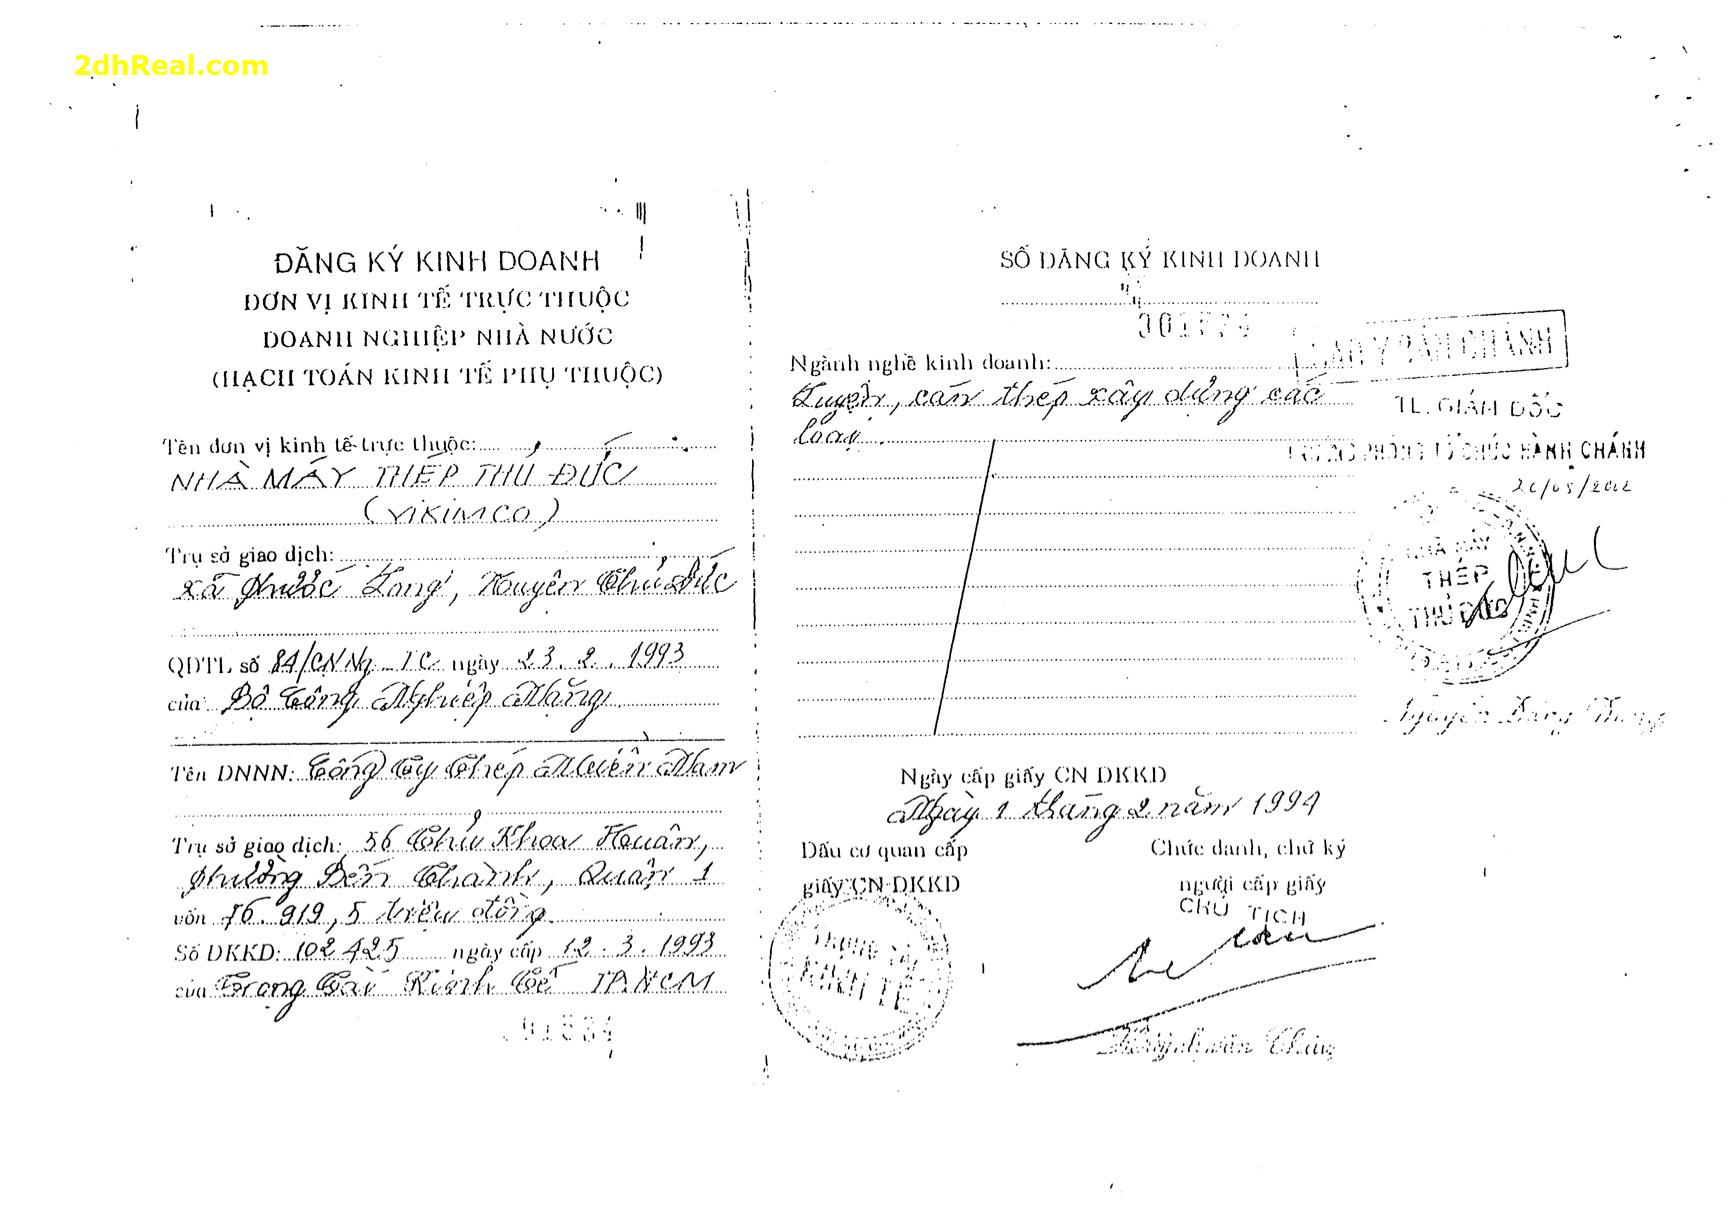 2dhReal.com
ĐĂNG KÝ KINH DOANH
ĐƠN VỊ KINH TẾ TRỰC THUỘC
DOANH NGHIỆP NHÀ NƯỚC
(HẠCH TOÁN KINH TẾ PHỤ THUỘC)
Tên đơn vị kinh tế trực thuộc:
NHÀ MÁY THÉP THỦ ĐỨC
(VIKIMCO)
Trụ sở giao dịch:
Xã Phước Long, Huyện Thủ Đức
QĐTL số 84/CNNg-TC ngày 23.2.1993
của Bộ Công Nghiệp Nặng
Tên DNNN: Tổng Cty Thép Miền Nam
Trụ sở giao dịch: 56 Thủ Khoa Huân,
Phường Bến Thành, Quận 1
vốn 76.919,5 triệu đồng
Số ĐKKD: 102425 ngày cấp 12.3.1993
của Trọng Tài Kinh Tế TP.HCM
SỐ ĐĂNG KÝ KINH DOANH
Ngành nghề kinh doanh:
Luyện, cán thép xây dựng các
loại
SAO Y BẢN CHÁNH
TL. GIÁM ĐỐC
TRƯỞNG PHÒNG TỔ CHỨC HÀNH CHÁNH
NHÀ MÁY
THÉP
THỦ ĐỨC
Ngày cấp giấy CN ĐKKD
Ngày 1 tháng 2 năm 1994
Dấu cơ quan cấp
giấy CN ĐKKD
Chức danh, chữ ký
người cấp giấy
CHỦ TỊCH
TRỌNG TÀI
KINH TẾ